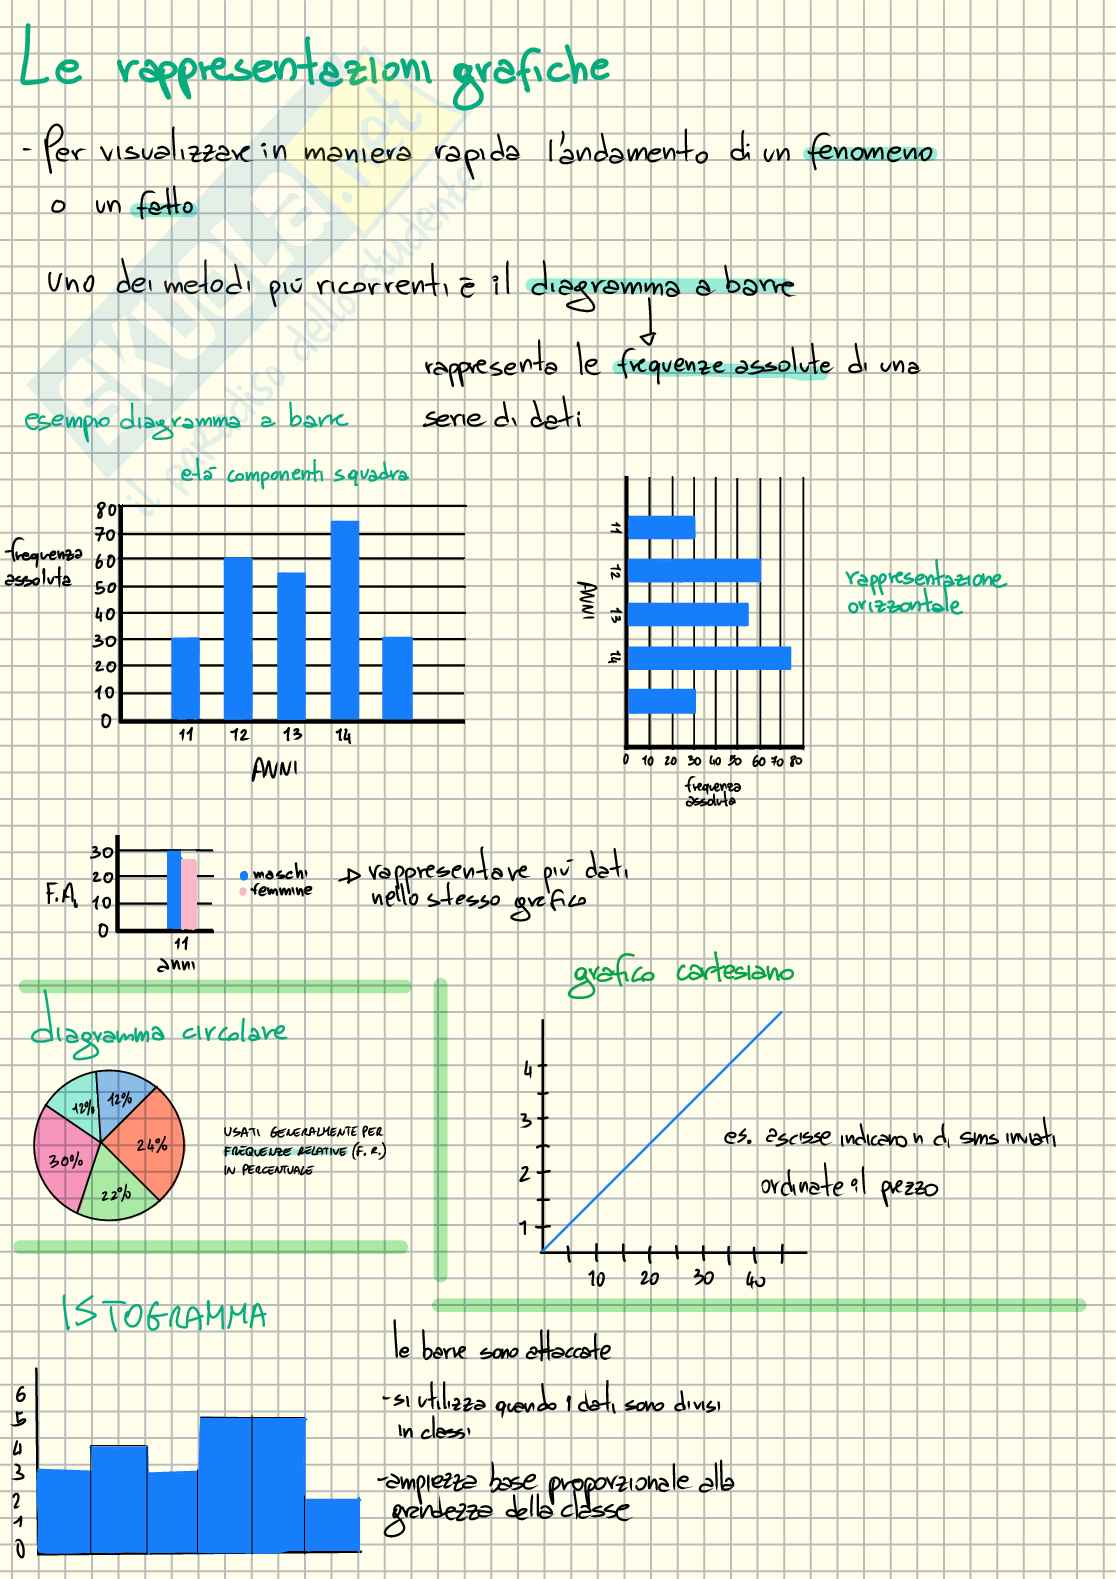 Le rappresentazioni grafiche
- Per visualizzare in maniera rapida l'andamento di un fenomeno
o un fatto
Uno dei metodi più ricorrenti è il diagramma a barre
rappresenta le frequenze assolute di una
serie di dati
esempio diagramma a barre
età componenti squadra
frequenza
assoluta
80
70
60
50
40
30
20
10
0
11 12 13 14
ANNI
11
12
13
14
ANNI
0 10 20 30 40 50 60 70 80
frequenza
assoluta
rappresentazione
orizzontale
F.A.
30
20
10
0
11
anni
maschi
femmine
→ rappresentare più dati
nello stesso grafico
diagramma circolare
12% 12%
24%
30%
22%
USATI GENERALMENTE PER
FREQUENZE RELATIVE (F.R.)
IN PERCENTUALE
grafico cartesiano
4
3
2
1
10 20 30 40
es. ascisse indicano n di sms inviati
ordinate il prezzo
ISTOGRAMMA
6
5
4
3
2
1
0
le barre sono attaccate
- si utilizza quando i dati sono divisi
in classi
- ampiezza base proporzionale alla
grandezza della classe
SKUOLA.net
il paradiso dello studente